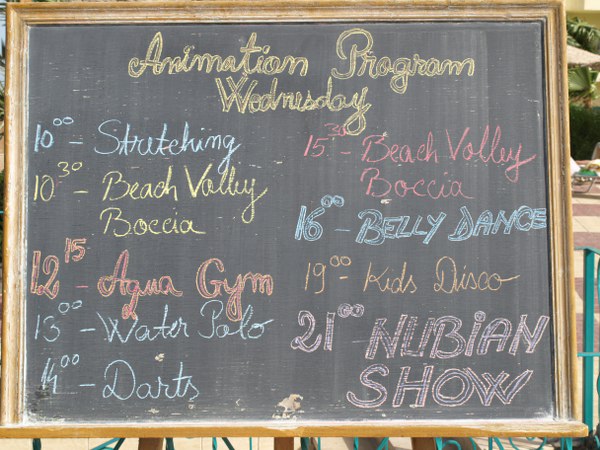 Animation Program
Wednesday
10⁰⁰ - Stretching
10³⁰ - Beach Valley
Boccia
12¹⁵ - Aqua Gym
13⁰⁰ - Water Polo
14⁰⁰ - Darts
15³⁰ - Beach Volley
Boccia
16⁰⁰ - BELLY DANCE
19⁰⁰ - Kids Disco
21⁰⁰ - NUBIAN
SHOW